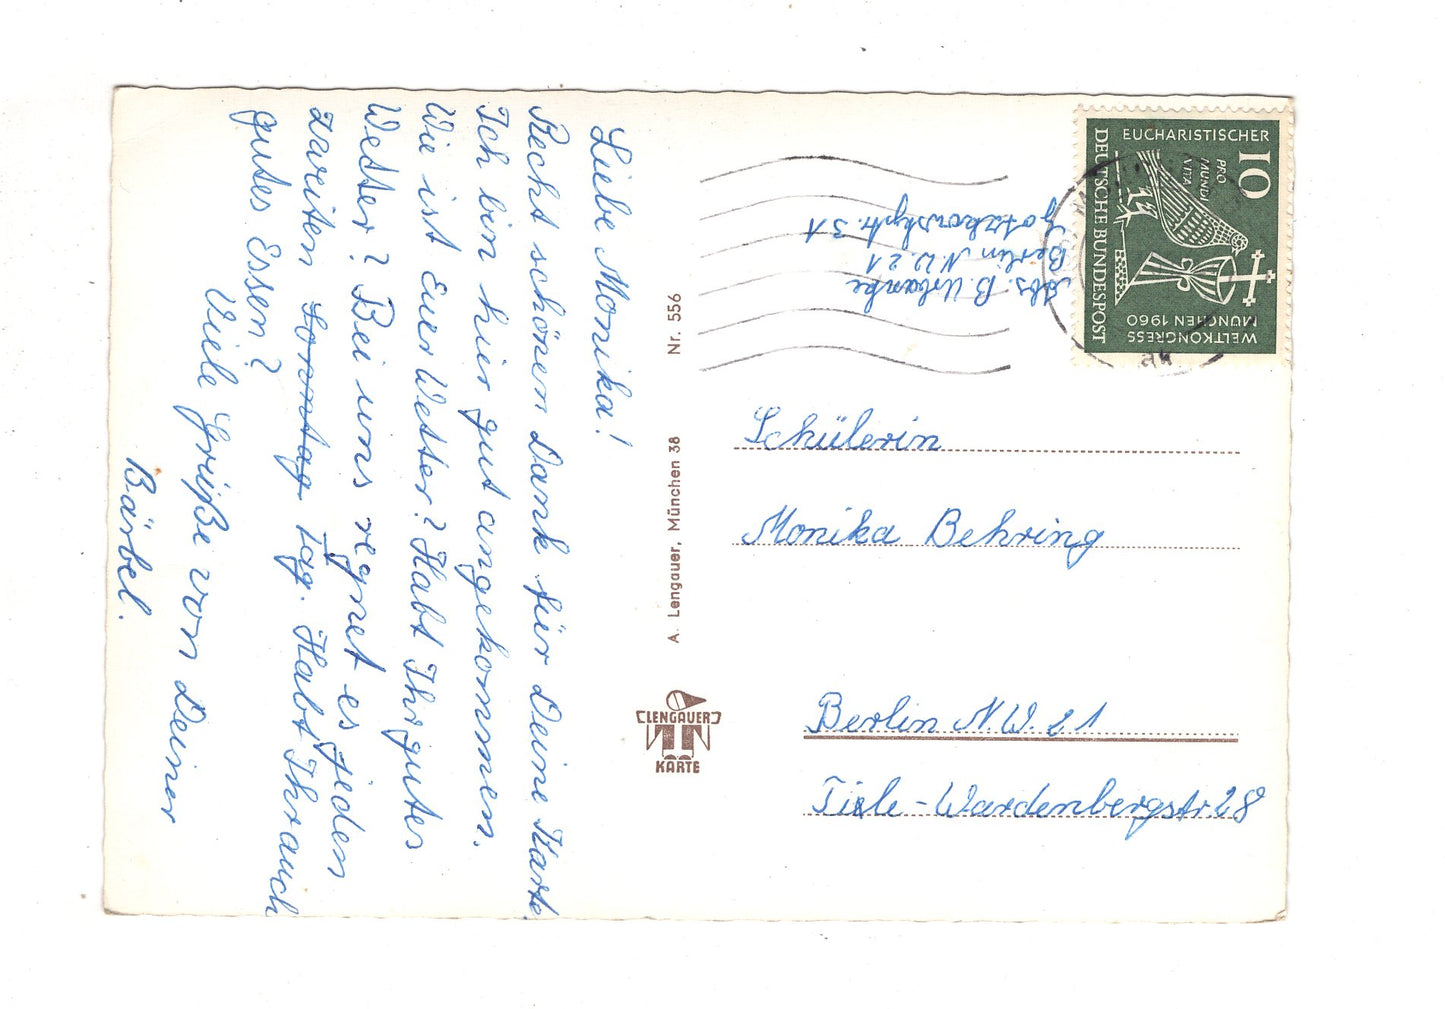 Liebe Monika!
Recht schönen Dank für Deine Karte.
Ich bin hier gut angekommen.
Wie ist Euer Wetter? Habt Ihr gutes
Wetter? Bei uns regnet es jeden
zweiten Sonntag Tag. Habt Ihr auch
gutes Essen?
Viele Grüße von Deiner
Bärbel.
Nr. 556
A. Lengauer, München 38
LENGAUER
KARTE
Abs. B. Urbanke
Berlin N.W. 21
Gotzkowskystr. 31
10
EUCHARISTISCHER
PRO
MUNDI
VITA
WELTKONGRESS
MÜNCHEN 1960
DEUTSCHE BUNDESPOST
Schülerin
Monika Behring
Berlin N.W. 21
Tile-Wardenbergstr. 28